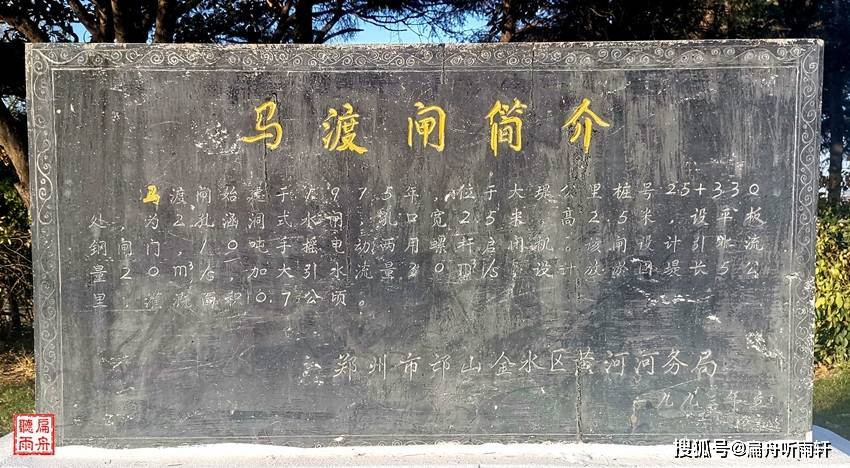 马渡闸简介
马渡闸始建于1975年,位于大堤公里桩号25+330
处,为2孔涵洞式水闸,孔口宽2.5米,高2.5米,设平板
钢闸门,10吨手摇电动两用螺杆启闭机。该闸设计引水流
量20m³/s,加大引水流量30m³/s。设计放淤固堤长5公
里,灌溉面积10.7公顷。
郑州市邙山金水区黄河河务局
一九九三年
扁舟
聽雨
搜狐号@扁舟听雨轩